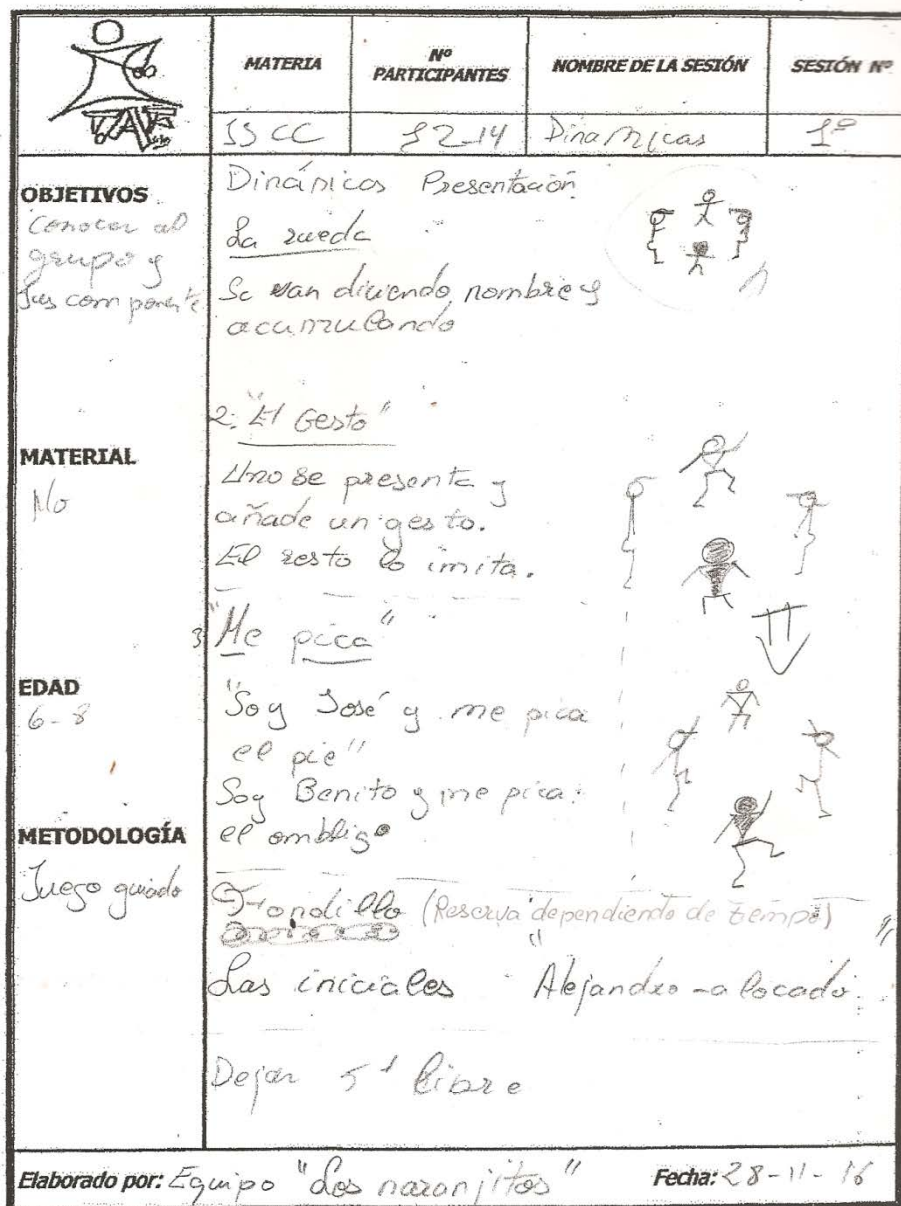 MATERIA
Nº PARTICIPANTES
NOMBRE DE LA SESIÓN
SESIÓN Nº
JSCC
12-14
Dinamicas
1º
OBJETIVOS
Conocer al
grupo y
sus componente
MATERIAL
No
EDAD
6-8
METODOLOGÍA
Juego guiado
Dinámicas Presentación
La rueda
Se van diciendo nombre y
acumulando
2. "El Gesto"
Uno se presenta y
añade un gesto.
El resto lo imita.
3 "Me pica"
"Soy José y me pica
el pie"
Soy Benito y me pica
el ombligo
(Reserva dependiendo de tiempo)
Las iniciales "Alejandro - alocado"
Dejar 5' libre
Elaborado por: Equipo "Los naranjitos"
Fecha: 28-11-16